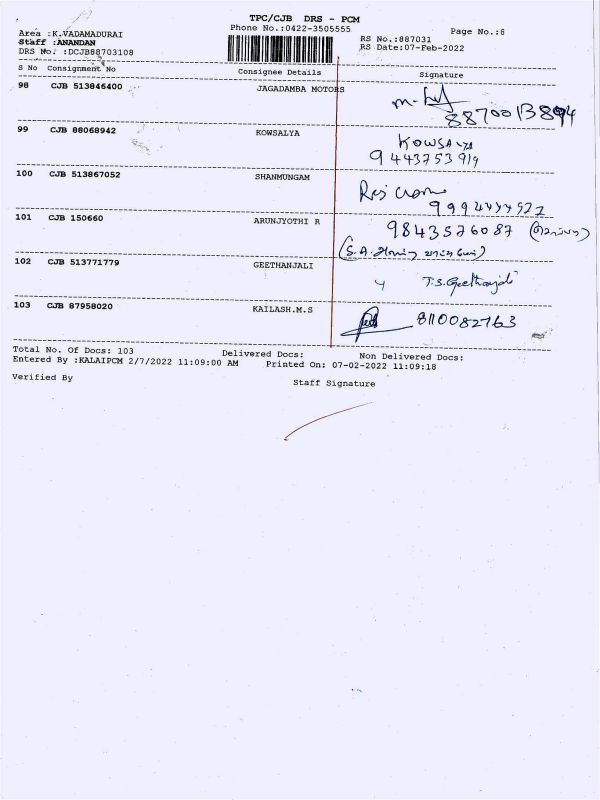 TPC/CJB DRS - PCM
Phone No.:0422-3505555
Page No.:6
Area :K.VADAMADURAI
Staff :ANANDAN
DRS No. :DCJB88703108
RS No.:887031
RS Date:07-Feb-2022
S No Consignment No Consignee Details Signature
98 CJB 513846400 JAGADAMBA MOTORS
8870013894
99 CJB 88068942 KOWSALYA KOWSALYA
9443753919
100 CJB 513867052 SHANMUNGAM
101 CJB 150660 ARUNJYOTHI R 9843526087
102 CJB 513771779 GEETHANJALI T.S.Geethanjali
103 CJB 87958020 KAILASH.M.S 8110082763
Total No. Of Docs: 103 Delivered Docs: Non Delivered Docs:
Entered By :KALAIPCM 2/7/2022 11:09:00 AM Printed On: 07-02-2022 11:09:18
Verified By Staff Signature